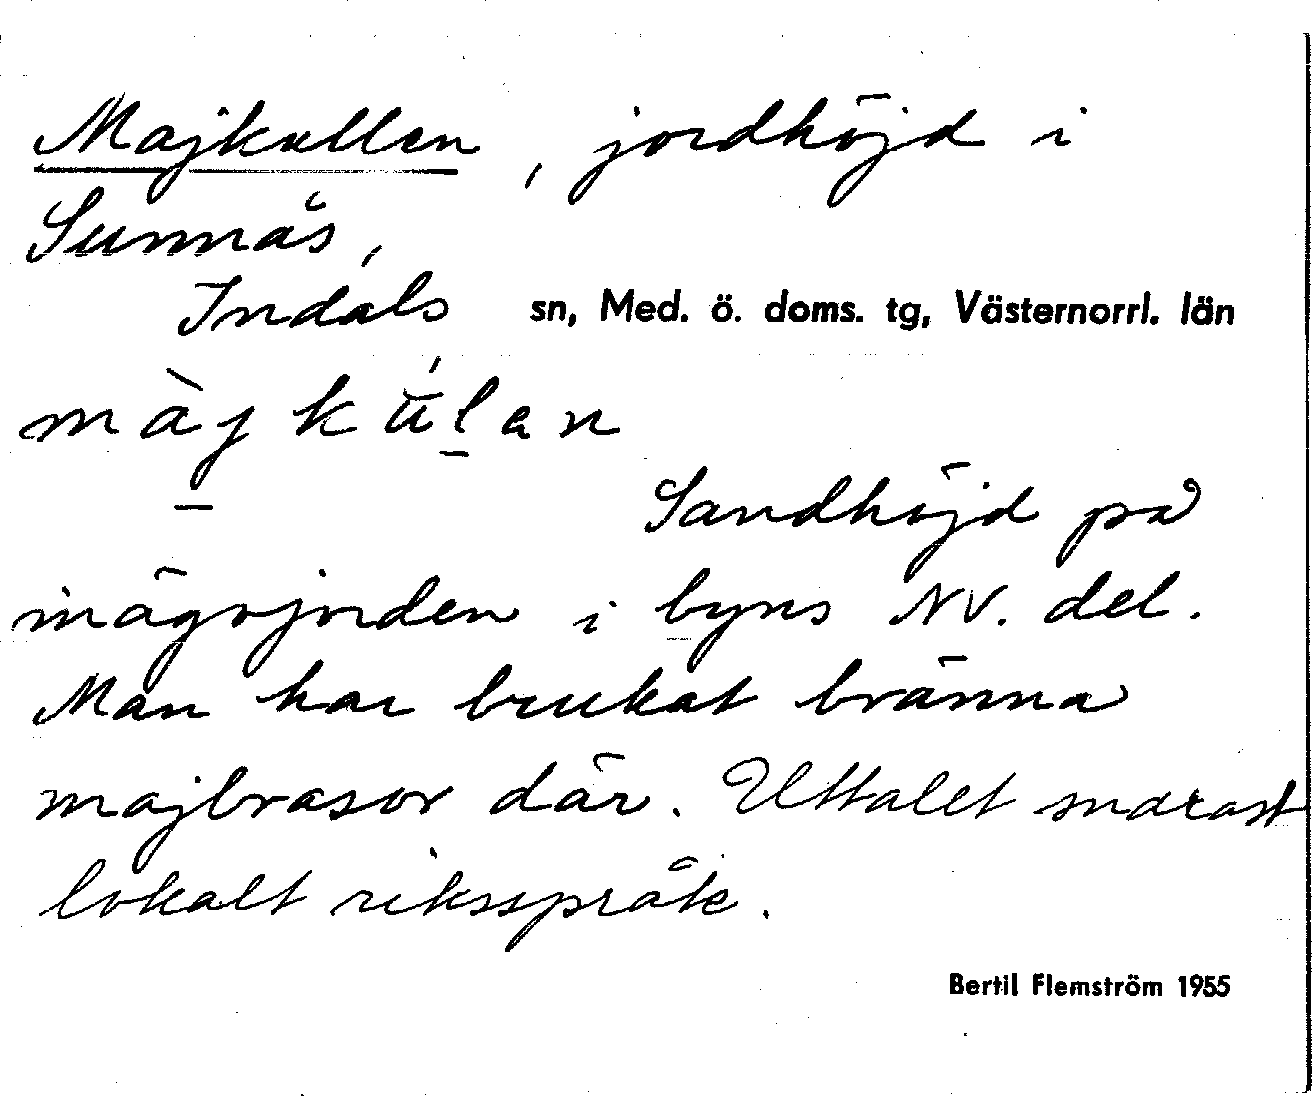 Majkullen, jordhöjd i
Sunnås,
Indals sn, Med. ö. doms. tg, Västernorrl. län
màjkúlan
Sandhöjd på
inägojorden i byns NV. del.
Man har brukat bränna
majbrasor där. Uttalet snarast
lokalt riksspråk.
Bertil Flemström 1955